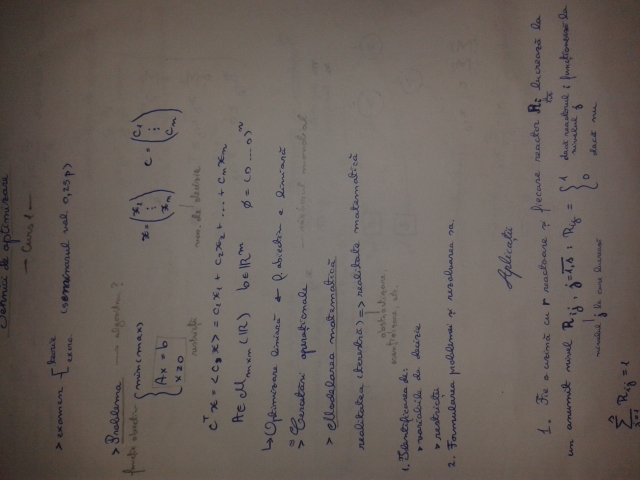 Tehnici de optimizare
— Curs 1 —
> examen { teorie
exerc. (seminarul val. 0,25p)
> Problema → algoritm ?
funcție obiectiv { min(max)
Ax = b
x ≥ 0
restricții
x = (x₁ ⋮ xₙ) c = (c₁ ⋮ cₙ)
var. de decizie
cᵀx = <c, x> = c₁x₁ + c₂x₂ + ... + cₙxₙ
A ∈ M_{m×n}(ℝ) b ∈ ℝᵐ 0 = (0 ... 0)ⁿ
↳ Optimizare liniară ← f. obiectiv e liniară
> Cercetări operaționale
> Modelarea matematică
realitatea (terestră) => realitate matematică
abstractizare,
esențializare, etc.
1. Identificarea de:
> variabile de decizie
> restricții
2. Formularea problemei și rezolvarea sa.
Aplicații
1. Fie o uzină cu r reactoare și fiecare reactor Rᵢ lucrează la
un anumit nivel Rᵢⱼ, j = 1,s : Rᵢⱼ = { 1 dacă reactorul i funcționează la nivelul j
0 dacă nu
nivelul j la care lucrează
∑_{j=1}^{s} Rᵢⱼ = 1